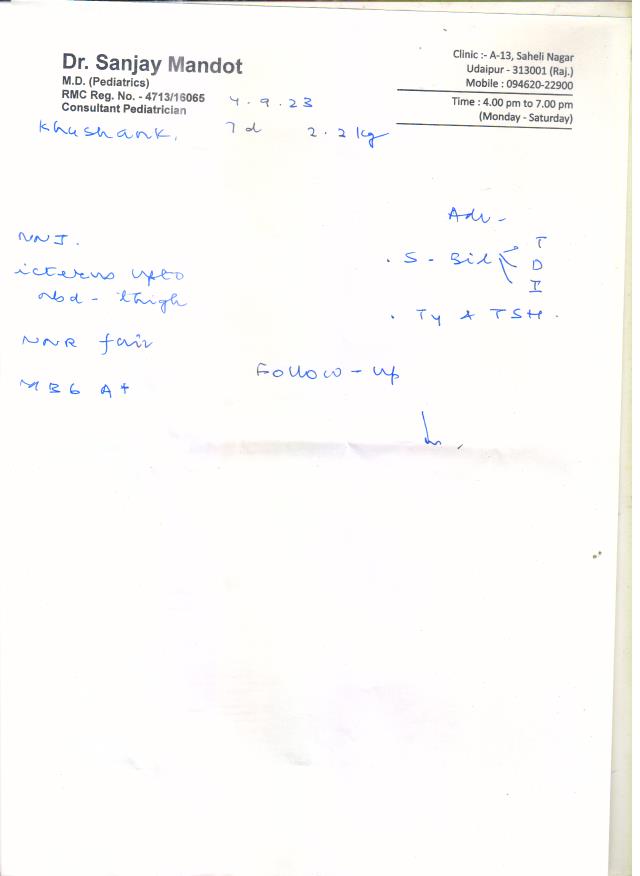 Dr. Sanjay Mandot
M.D. (Pediatrics)
RMC Reg. No. - 4713/16065
Consultant Pediatrician
Clinic :- A-13, Saheli Nagar
Udaipur - 313001 (Raj.)
Mobile : 094620-22900
Time : 4.00 pm to 7.00 pm
(Monday - Saturday)
4.9.23
Khushank. 7d 2.2 kg
Adv -
NNJ.
. S - Bil T
D
I
icterus upto
abd - thigh
. T4 & TSH.
NNR fair
Follow - up
MBG A+